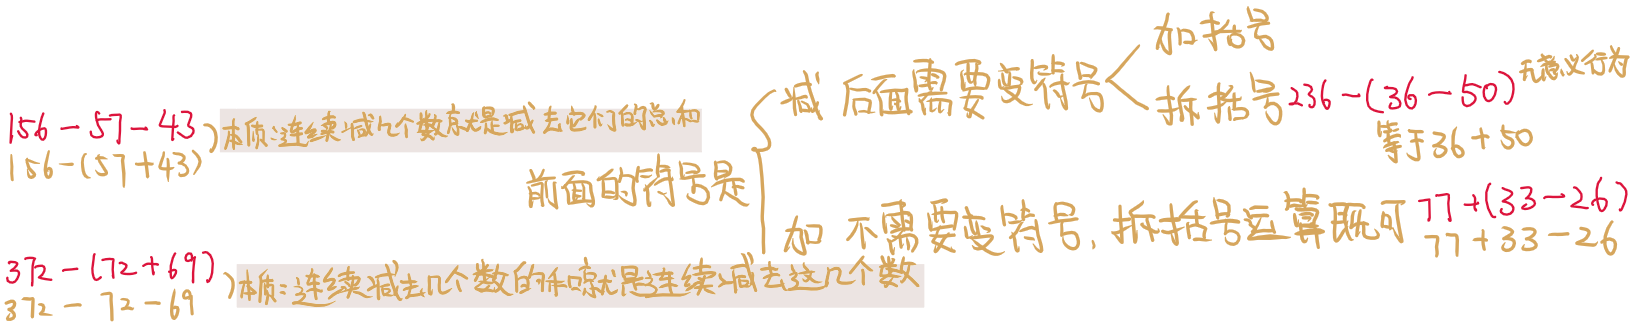 156-57-43
156-(57+43)
本质:连续减几个数就是减去它们的总和
372-(72+69)
372-72-69
本质:连续减去几个数的和就是连续减去这几个数
前面的符号是
减 后面需要变符号
加括号
拆括号 236-(36-50) 无意义行为
等于36+50
加 不需要变符号,拆括号运算既可 77+(33-26)
77+33-26